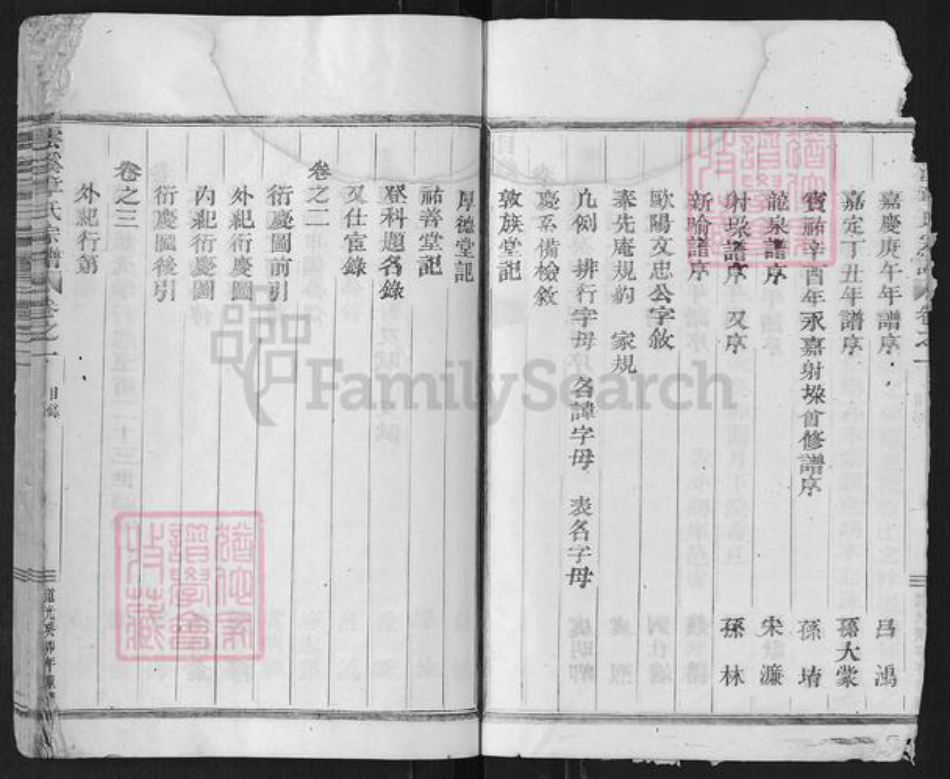 嘉慶庚午年譜序 呂鴻
嘉定丁丑年譜序 孫大蒙
寶祐辛酉年永嘉射垛首修譜序 孫堉
龍泉譜序 宋濂
射垛譜序 又序 孫林
新喻譜序
歐陽文忠公字敘
泰先庵規約 家規
凡例 排行字母 名諱字母 表名字母
慶系備檢敘
敦族堂記
厚德堂記
祐善堂記
登科題名錄
又仕宦錄
卷之二
衍慶圖前引
外紀衍慶圖
內紀衍慶圖
衍慶圖後引
卷之三
外紀行第
氏宗譜 卷之一 目錄
道光 年
譜學會
收藏
FamilySearch